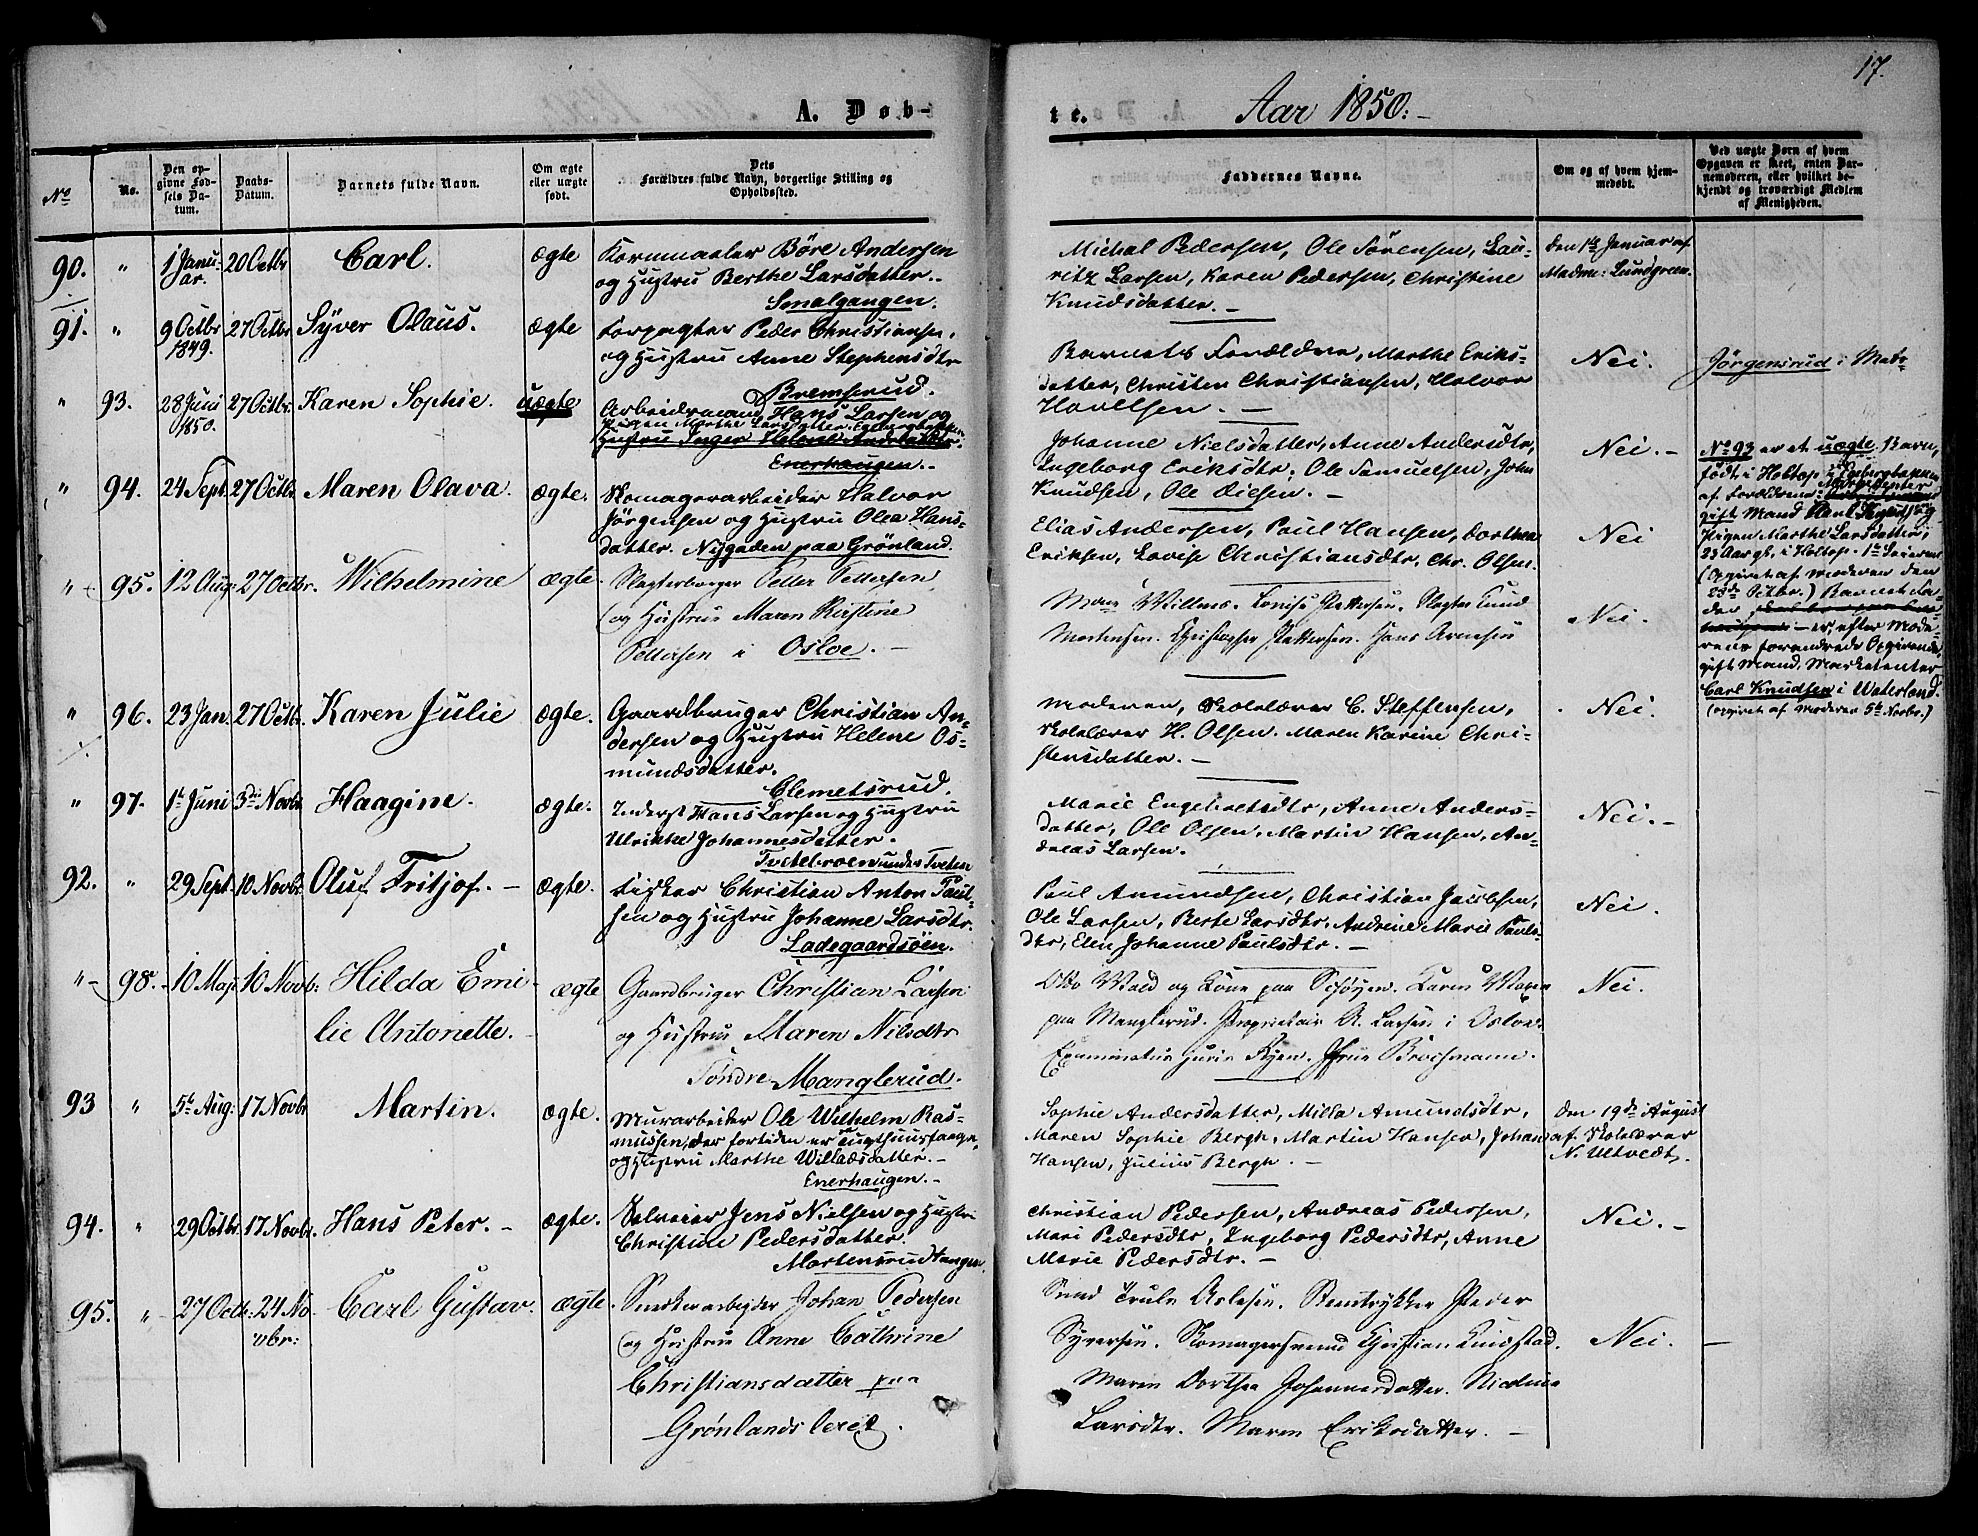 17.
A. Døb-
te.
Aar 1850.-
No
No.
Den op-
givne Fød-
sels Da-
tum.
Daabs-
Datum.
Barnets fulde Navn.
Om ægte
eller uægte
født.
Dets
Forældres fulde Navn, borgerlige Stilling og
Opholdssted.
Faddernes Navne.
Om og af hvem hjem-
medøbt.
Ved uægte Børn af hvem
Opgaven er skeet, enten Bar-
nemoderen, eller hvilket be-
kjendt og troværdigt Medlem
af Menigheden.
90. " 1 Janu-
ar. 20 Octbr Carl. ægte
Kornmaaler Böre Andersen
og Hustru Berthe Larsdatter.-
Smalgangen.
Michal Pedersen, Ole Sörensen, Lau-
ritz Larsen, Karen Pedersen, Christine
Knudsdatter. -
den 1ste Januar af
Madme: Lundgreen.
91. " 9 Octbr
1849. 27 Octbr Syver Olaus. ægte
Forpagter Peder Christiansen,
og Hustru Anne Stephensdtr
Bremsrud.
Barnets Forældre, Marthe Eriks-
datter, Christen Christiansen, Halvor
Havelsen. -
Nei.
Jörgensrud i
" 93. 28 Juni
1850. 27 Octbr. Karen Sophie. uægte
Arbeidsmand Hans Larsen og
Pigen Marthe Larsdatter. Egebergbakken.
Hustru Inger Helene Andersdtr.
Enerhaugen.-
Johanne Nielsdatter, Anne Andersdtr,
Ingeborg Eriksdtr, Ole Samuelsen, John
Knudsen, Ole Diesen. -
Nei. -
No 93 er et uægte Barn,
født i
af Forældrene:
gift Mand
Pigen Marthe Larsdatter,
23 Aar gl.
(Opgivet af Moderen den
23de Octbr.) Barnets Fa-
der
er, efter Mode-
rens forandrede Opgivende,
gift Mand, Marketenter
Carl Knudsen i Waterland.
(opgivet af Moderen 5te Novbr.)
" 94. 24 Sept. 27 Octbr. Maren Olava. ægte.
Skomagerarbeider Halvor
Jörgensen og Hustru Olea Hans-
datter. Nygaden paa Grönland.
Elias Andersen, Paul Hansen, Dorthea
Eriksen, Lovise Christiansdtr, Chr. Olsen.
Nei
" 95. 12 Aug: 27 Octbr. Wilhelmine ægte.
Slagterborger Petter Pettersen,
og Hustrue Maren Kirstine
Pettersen i Osloe. -
Willms. Lovise Pettersen. Slagter Knud
Mortensen. Christopher Pettersen. Hans Arnesen
Nei.
" 96. 23 Jan. 27 Octbr. Karen Julie ægte.
Gaardbruger Christian An-
dersen og Hustru Helene Os-
mundsdatter.
Clemetsrud.
Moderen, Skolelærer C. Steffensen,
Skolelærer H. Olsen. Maren Karine Chri-
stensdatter. -
Nei.
" 97. 1te Juni 3die Novbr. Haagine. ægte.
Inderst Hans Larsen og Hustru
Ulrikke Johannesdatter.
Tvetebroen under Tveten
Marie Engebretsdtr, Anne Anders-
datter, Ole Olsen, Martin Hansen, An-
dreas Larsen.
Nei. -
92. " 29 Sept. 10 Novbr. Oluf Fritjof. - ægte.
Fisker Christian Anton Paul-
sen og Hustru Johanne Larsdtr.
Ladegaardsöen.
Paul Amundsen, Christian Jacobsen,
Ole Larsen, Berte Larsdtr. Andrine Marie Pauls-
dtr, Elen Johanne Paulsdtr. -
Nei.
" 98. 10 Maj 10 Novb: Hilda Emi-
lie Antonette. ægte
Gaardbruger Christian Larsen
og Hustrue Maren Nilsdtr
Söndre Manglerud.
og Kone paa Karen
paa Manglerud. Proprietair A. Larsen i Osloe.
Frue Brochmann.
Nei.
93 " 5te Aug: 17 Novbr Martin. ægte.
Murarbeider Ole Wilhelm Ras-
mussen, der for tiden er Tugthuusfange,
og Hustru Marthe Willadsdatter. -
Enerhaugen. -
Sophie Andersdatter, Milla Amundsdtr,
Maren Sophie Bergh, Martin Hansen, Johan
Hansen, Julius Bergh. -
den 19de August
af Skolelærer
N. Utvedt.
94. " 29 Octbr. 17 Novbr. Hans Peter. - ægte.
Selveier Jens Nielsen og Hustru
Christine Pedersdatter.
Mortensrudtangen.
Christian Pedersen, Andreas Pedersen,
Mari Pedersdtr, Ingeborg Pedersdtr, Anne
Marie Pedersdtr. -
Nei. -
95. " 27 Octb: 24 No-
vbr: Carl Gustav. ægte.
Snedkerarbejder Johan Pedersen
og Hustrue Anne Cathrine
Christiansdatter paa
Grönlands leret.
Svend Truls Aslesen. Steentrykker Peder
Syversen. Skomagersvend Christian Knudstad.
Maren Dorthea Johannesdatter.
Larsdtr. Maren Eriksdatter. -
Nei. -